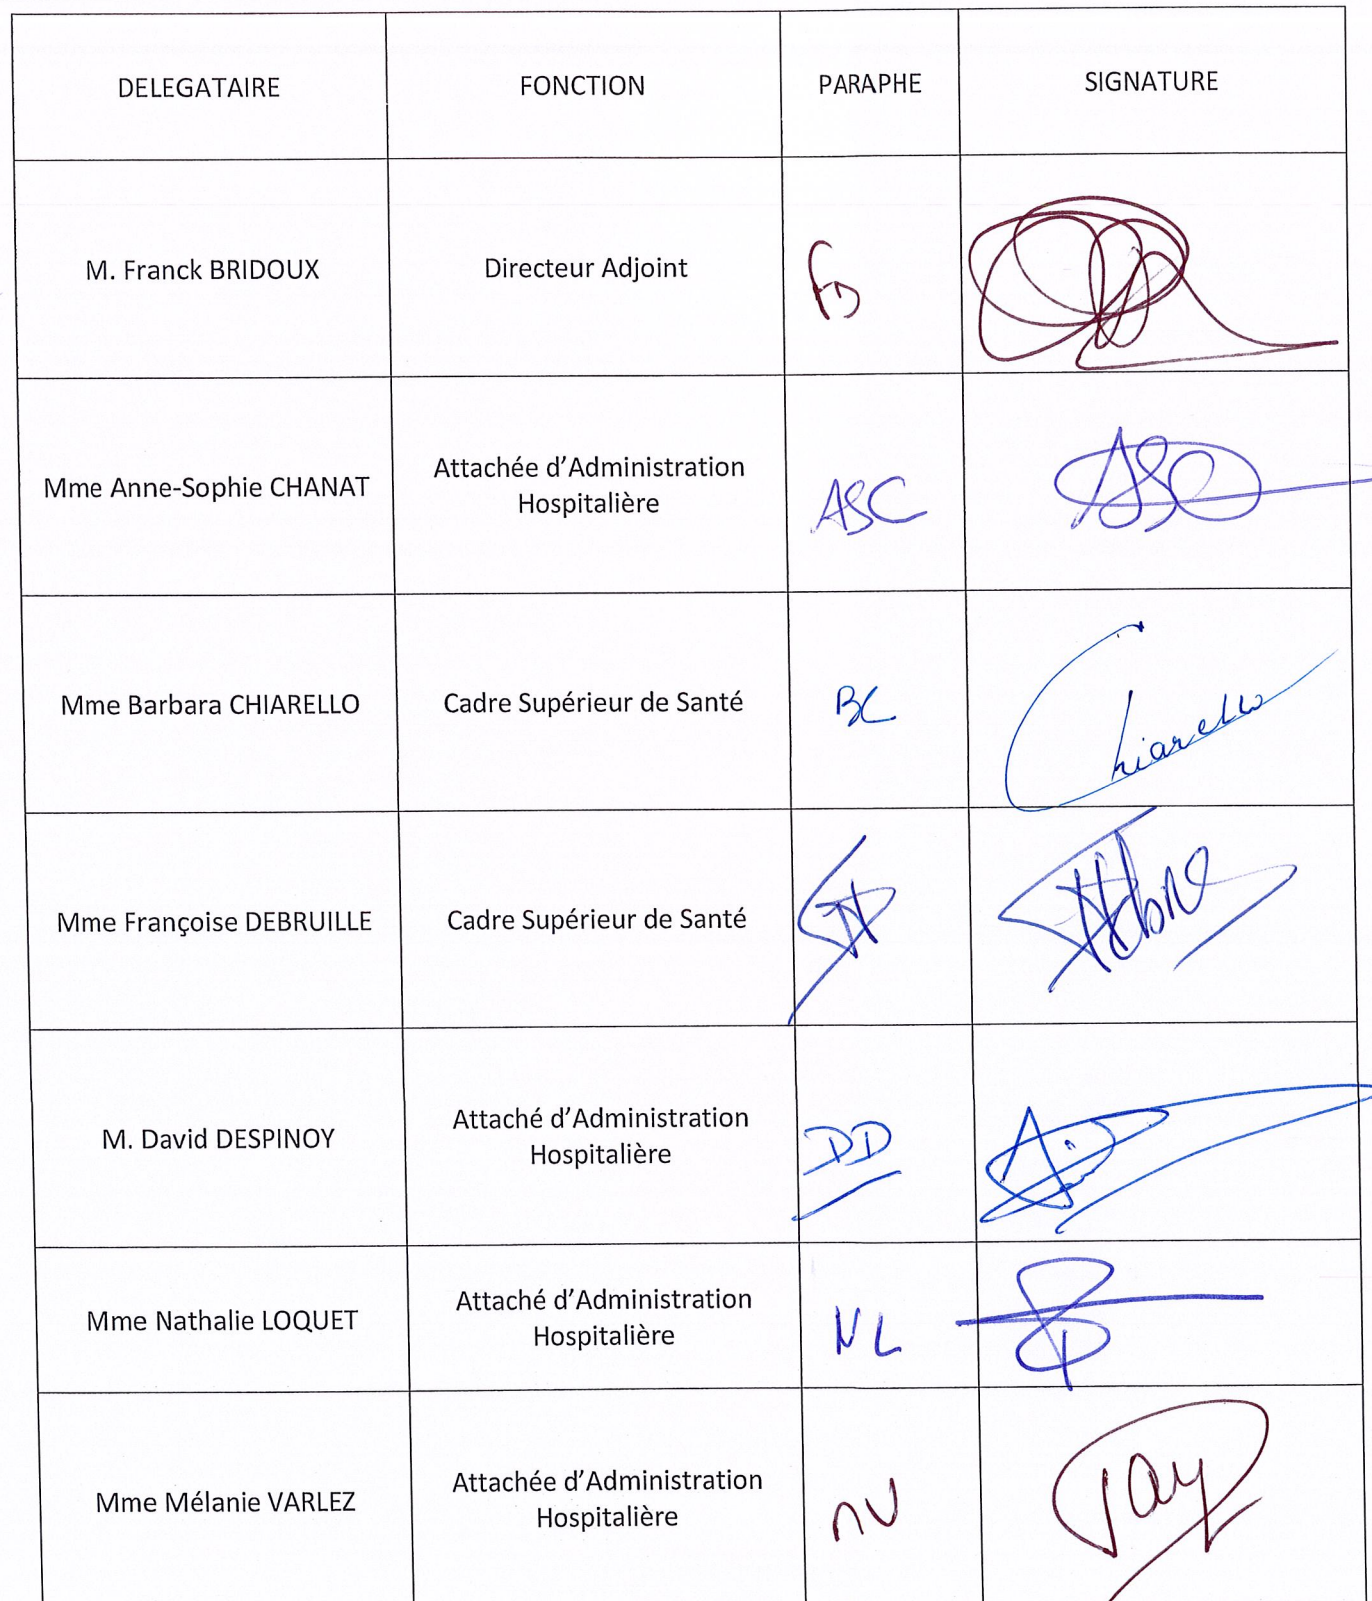 DELEGATAIRE FONCTION PARAPHE SIGNATURE
M. Franck BRIDOUX Directeur Adjoint FB
Mme Anne-Sophie CHANAT Attachée d'Administration
Hospitalière ASC ASC
Mme Barbara CHIARELLO Cadre Supérieur de Santé BC Chiarello
Mme Françoise DEBRUILLE Cadre Supérieur de Santé
M. David DESPINOY Attaché d'Administration
Hospitalière DD
Mme Nathalie LOQUET Attaché d'Administration
Hospitalière NL
Mme Mélanie VARLEZ Attachée d'Administration
Hospitalière MV